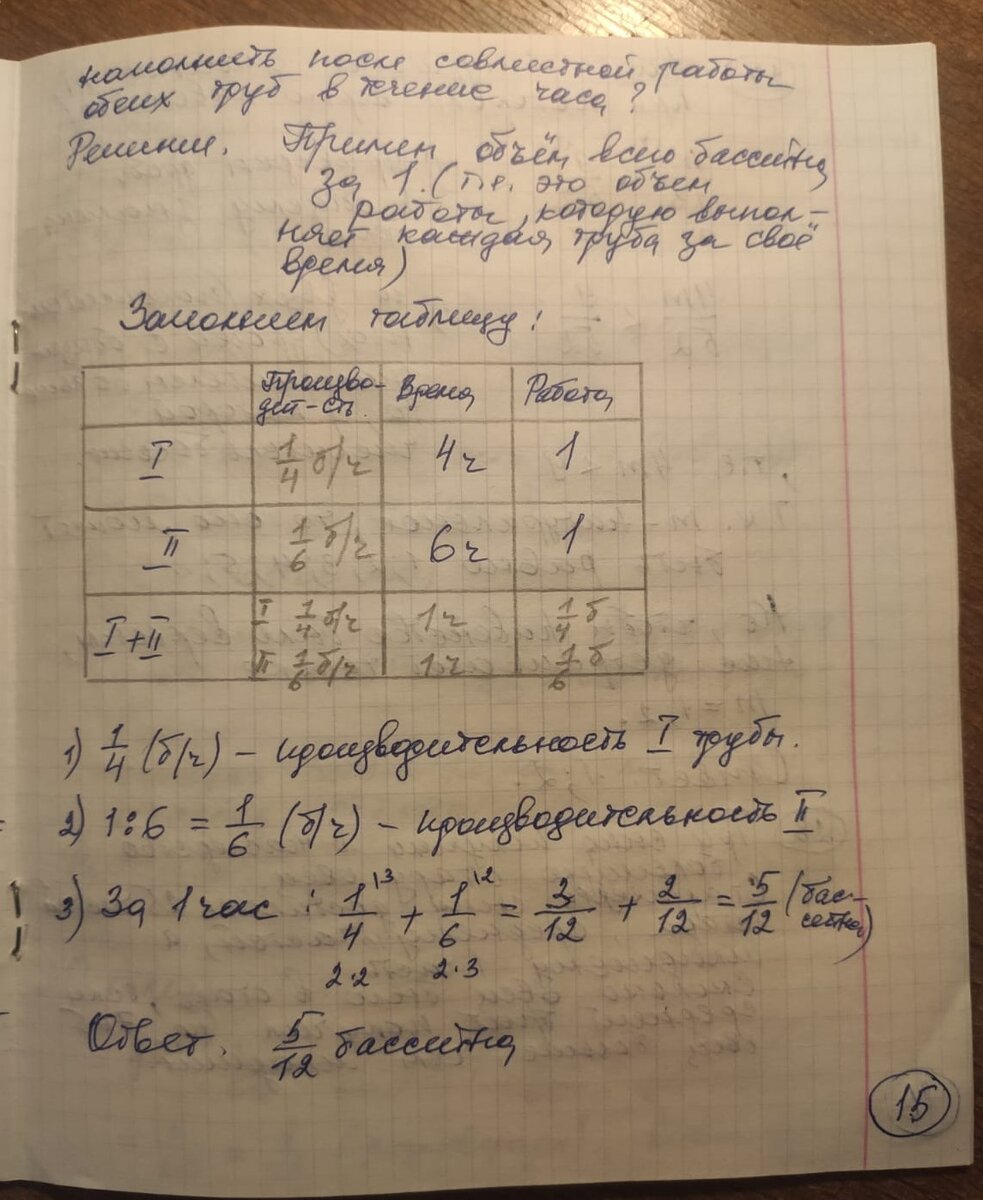 наполнить после совместной работы
обеих труб в течение часа?
Решение. Примем объём всего бассейна
за 1. (т.е. это объем
работы, которую выпол-
няет каждая труба за своё
время)
Заполняем таблицу:
Произво- Время Работа
дит-сть.
I 1/4 б/ч 4ч 1
II 1/6 б/ч 6ч 1
I+II I 1/4 б/ч 1ч 1/4 б
II 1/6 б/ч 1ч 1/6 б
1) 1/4 (б/ч) – производительность I трубы.
2) 1:6 = 1/6 (б/ч) – производительность II
3) За 1 час : 1/4 \3 + 1/6 \2 = 3/12 + 2/12 = 5/12 (бас-
сейна)
2·2 2·3
Ответ. 5/12 бассейна
15